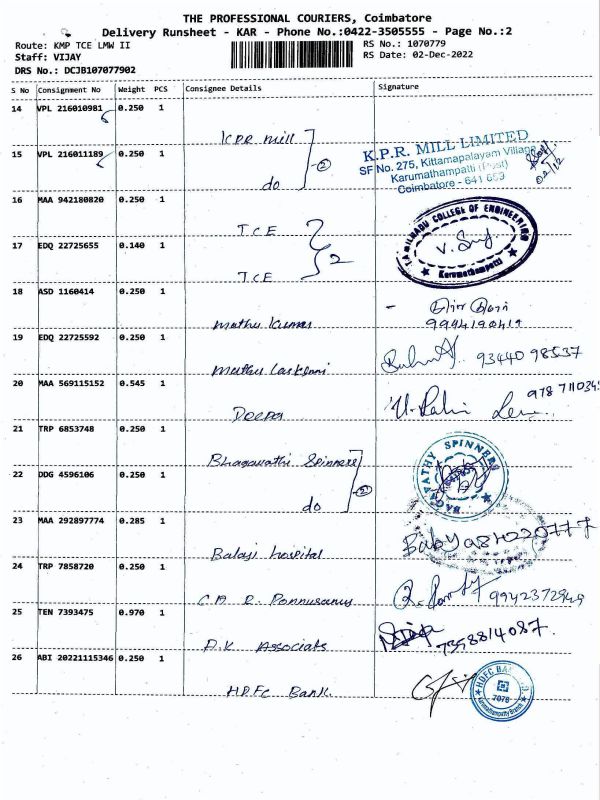 THE PROFESSIONAL COURIERS, Coimbatore
Delivery Runsheet - KAR - Phone No.:0422-3505555 - Page No.:2
Route: KMP TCE LMW II
RS No.: 1070779
Staff: VIJAY
RS Date: 02-Dec-2022
DRS No.: DCJB107077902
S No Consignment No Weight PCS Consignee Details Signature
14 VPL 216010981 0.250 1 KPR Mill
15 VPL 216011189 0.250 1 do
2
K.P.R. MILL LIMITED
SF No. 275, Kittamapalayam Village
Karumathampatti (Post)
Coimbatore - 641 659
02/12
16 MAA 942180820 0.250 1 TCE
17 EDQ 22725655 0.140 1 TCE
2
TAMILNADU COLLEGE OF ENGINEERING
Karumathampatti
18 ASD 1160414 0.250 1 Muthu Kumar
9994190419
19 EDQ 22725592 0.250 1 Muthu Lakshmi 93440 98537
20 MAA 569115152 0.545 1 Deepa
978 711034
21 TRP 6853748 0.250 1 Bhagavathi Spinners
22 DDG 4596106 0.250 1 do
2
BAGAVATHY SPINNERS
23 MAA 292897774 0.285 1 Balaji hospital Baby
24 TRP 7858720 0.250 1 C.A. R. Ponnusamy 9942372949
25 TEN 7393475 0.970 1 A.K Associats 7358814087
26 ABI 20221115346 0.250 1 HDFC Bank
HDFC BANK
7078
Karumathampatty Branch